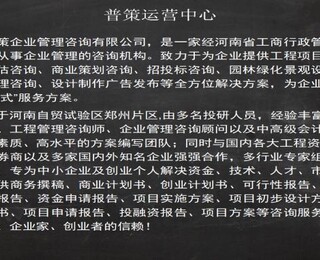 普策运营中心
策企业管理咨询有限公司，是一家经河南省工商行政管
从事企业管理的咨询机构。致力于为企业提供工程项目
估咨询、商业策划咨询、招投标咨询、园林绿化景观设
理咨询、设计制作广告发布等全方位解决方案，为企业
式”服务方案。
于河南自贸试验区郑州片区，由多名投研人员，经验丰富
、工程管理咨询师、企业管理咨询顾问以及中高级会计
素质、高水平的方案编写团队；同时与国内各大工程咨
券商以及多家国内外知名企业强强合作，多行业专家组
，专为中小企业及创业个人解决资金、技术、人才、市
供商务撰稿、商业计划书、创业计划书、可行性报告、
报告、资金申请报告、项目实施方案、项目初步设计方
书、项目申请报告、投融资报告、项目方案等咨询服务
、企业家、创业者的信赖！